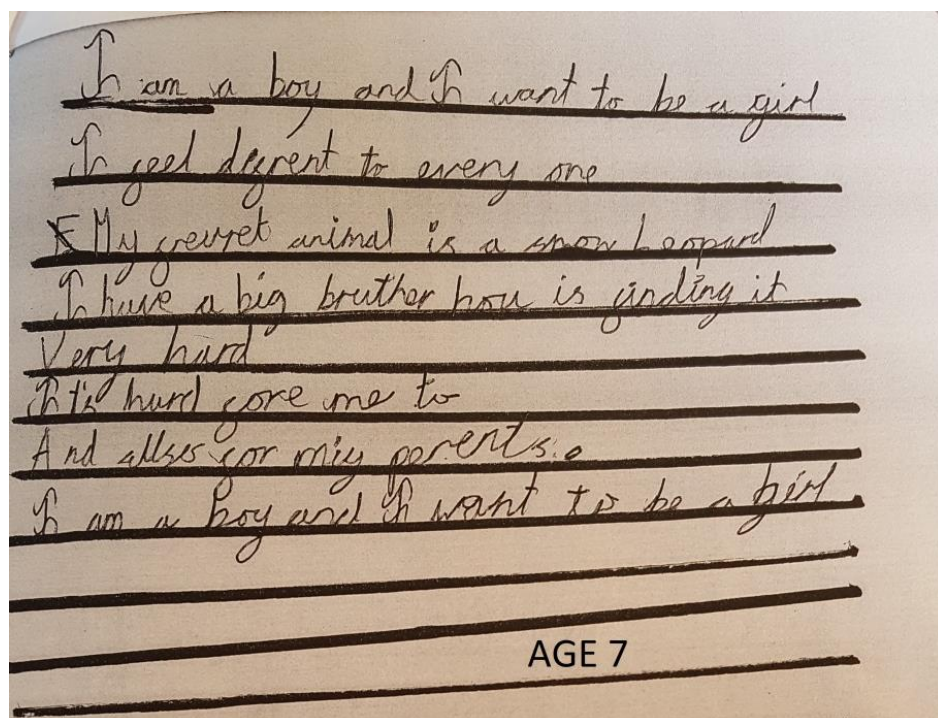 I am a boy and I want to be a girl
I feel difrent to every one
My fevret animal is a snow Leopard
I have a big bruther hou is finding it
Very hard
It's hard fore me to
And allso for miy perents.
I am a boy and I want to be a girl
AGE 7